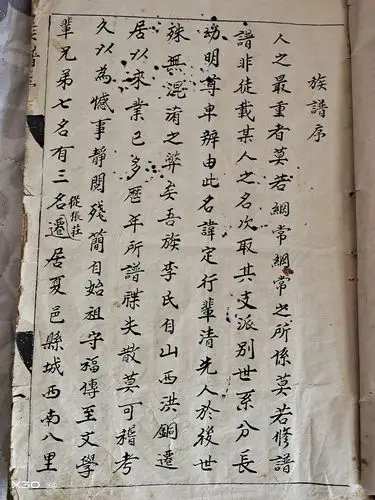 族譜序
人之最重者莫若綱常綱常之所係莫若修譜
譜非徒載某人之名次取其支派別世系分長
幼明尊卑辨由此名諱定行輩清先人於後世
殊無混淆之弊矣吾族李氏自山西洪銅遷
居以來業已多歷年所譜牒失散莫可稽考
久以為憾事靜閱殘簡自始祖守福傳至文學
輩兄弟七名有三名從張莊遷居夏邑縣城西南八里
X30